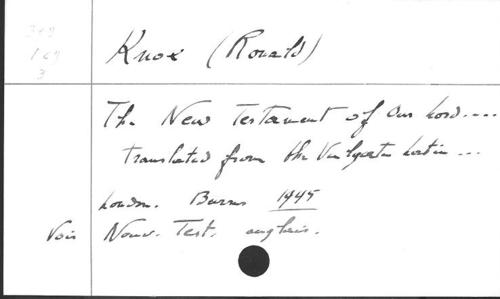 Knox (Ronald)
The New Testament of Our Lord....
translated from the Vulgate Latin...
London. Burns 1945
Voir Nouv. Test. anglais.